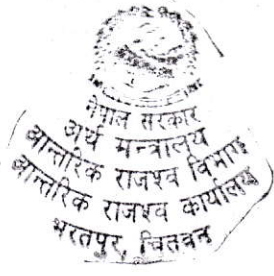 नेपाल सरकार
अर्थ मन्त्रालय
आन्तरिक राजश्व विभाग
आन्तरिक राजश्व कार्यालय
भरतपुर, चितवन